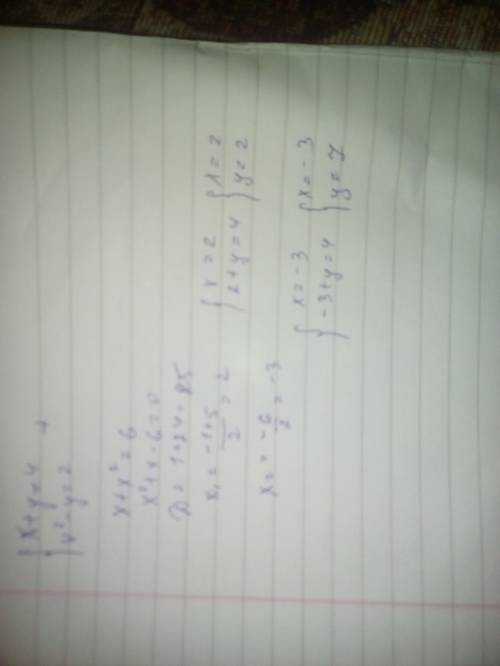 { x+y=4 +
{ x²-y=2
x+x²=6
x²+x-6=0
D=1+24=25
x₁=(-1+5)/2=2
{ x=2 { x=2
{ 2+y=4 { y=2
x₂=-6/2=-3
{ x=-3 { x=-3
{ -3+y=4 { y=7